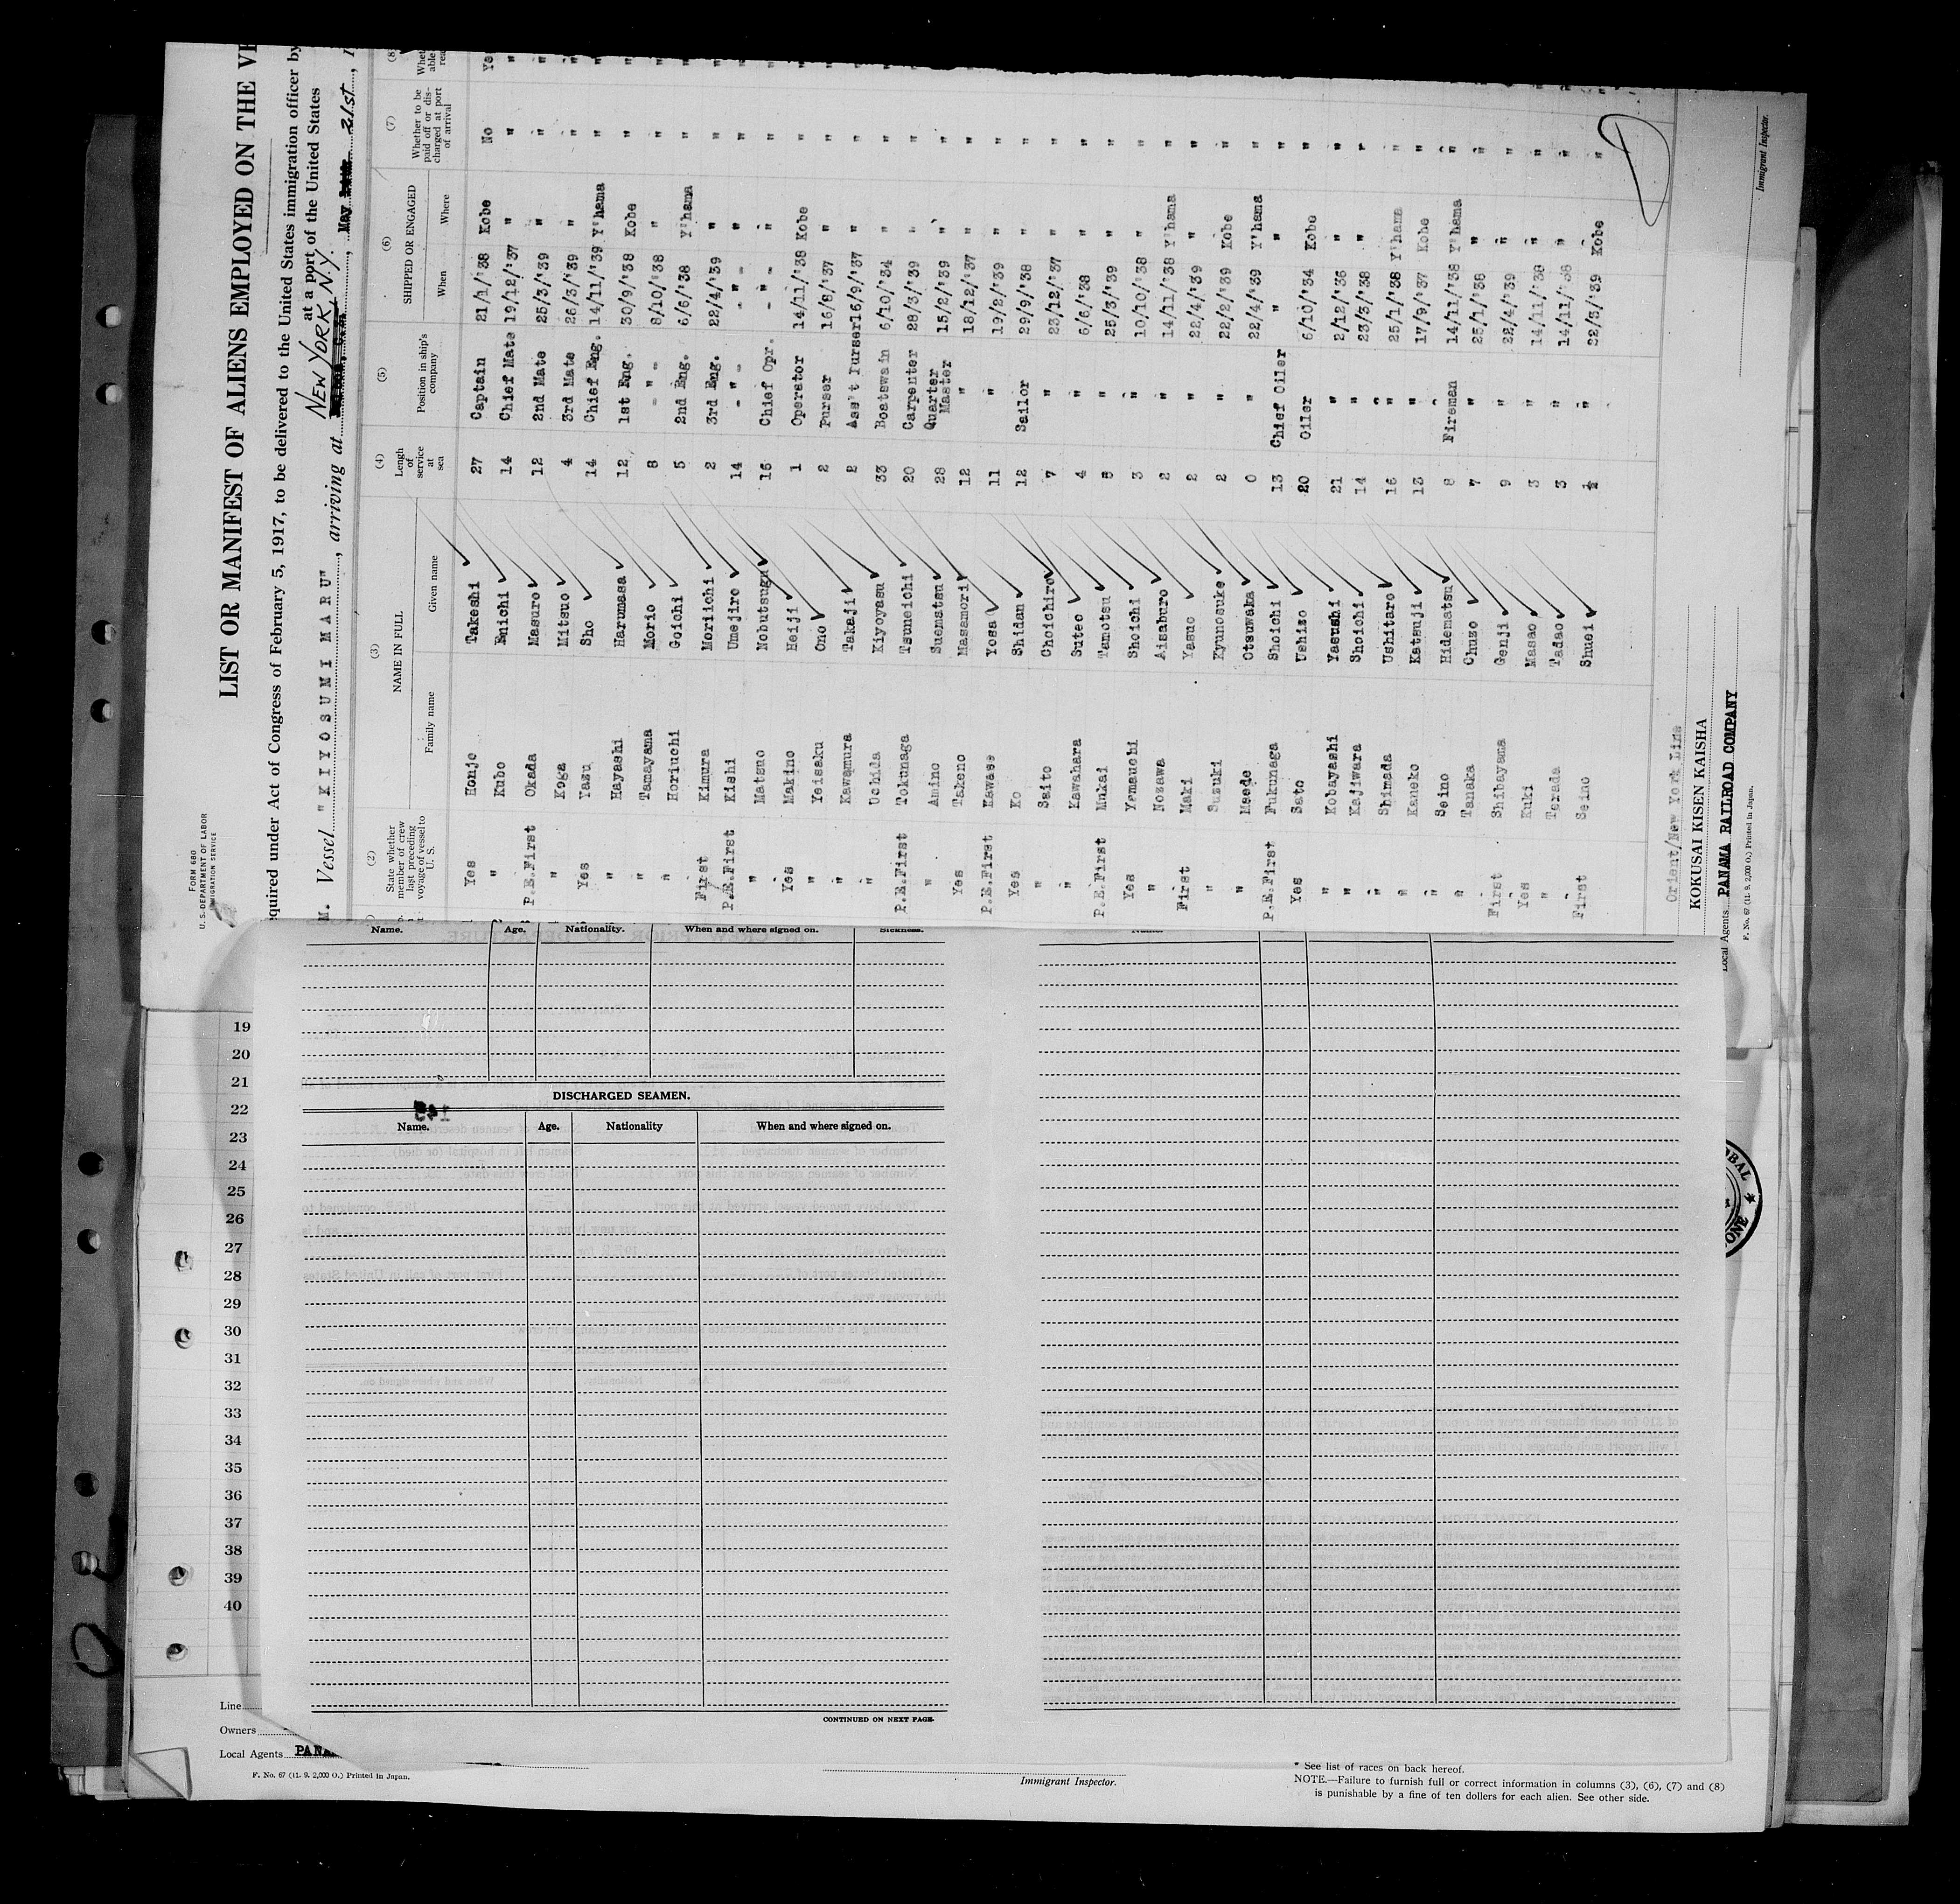 FORM 680
U. S. DEPARTMENT OF LABOR
IMMIGRATION SERVICE
LIST OR MANIFEST OF ALIENS EMPLOYED ON THE
equired under Act of Congress of February 5, 1917, to be delivered to the United States immigration officer by
at a port of the United States
NEW YORK, N.Y.
M. Vessel "KIYOSUMI MARU", arriving at , May 21st, 1
(2) (3) (4) (5) (6) (7) (8)
State whether member of crew last preceding voyage of vessel to U. S.
NAME IN FULL
Family name Given name
Lengh of service at sea
Position in ship's company
SHIPPED OR ENGAGED
When Where
Whether to be paid off or discharged at port of arrival
Yes Honjo Takeshi 27 Captain 21/1/'38 Kobe No
" Kubo Eiichi 14 Chief Mate 19/12/'37 " "
P.E.First Okada Masuro 12 2nd Mate 25/3/'39 " "
" Koga Mitsuo 4 3rd Mate 26/3/'39 " "
Yes Yazu Sho 14 Chief Eng. 14/11/'39 Y'hama "
" Hayashi Harumasa 12 1st Eng. 30/9/'38 Kobe "
" Tamayama Morio 8 - " - 8/10/'38 " "
" Horiuchi Goichi 5 2nd Eng. 6/6/'38 Y'hama "
First Kimura Moriichi 2 3rd Eng. 22/4/'39 " "
P.E.First Kishi Umejiro 14 - " - - " - " "
" Matsuo Nobutsugu 15 Chief Opr. - " - " "
Yes Makino Heiji 1 Operator 14/11/'38 Kobe "
" Yeisaku Ono 2 Purser 16/8/'37 " "
" Kawamura Takaji 2 Ass't Purser 16/9/'37 " "
" Uchida Kiyoyasu 33 Boatswain 6/10/'34 " "
P.E.First Tokunaga Tsuneichi 20 Carpenter 28/3/'39 " "
" Amino Suematsu 28 Quarter Master 15/2/'39 " "
Yes Takeno Masamori 12 " 18/12/'37 " "
P.E.First Kawase Yosa 11 " 19/2/'39 " "
Yes Ko Shidan 12 Sailor 29/9/'38 " "
" Saito Choichiro 7 " 23/12/'37 " "
" Kawahara Suteo 4 " 6/6/'38 " "
P.E.First Mukai Tamotsu 5 " 25/3/'39 " "
Yes Yamauchi Shoichi 3 " 10/10/'38 " "
" Nozawa Aisaburo 2 " 14/11/'38 Y'hama "
First Maki Yasuo 2 " 22/4/'39 " "
" Suzuki Kyunosuke 2 " 22/2/'39 Kobe "
" Maeda Otsuwaka 0 " 22/4/'39 Y'hama "
P.E.First Fukunaga Shoichi 13 Chief Oiler " " "
Yes Sato Ushizo 20 Oiler 6/10/'34 Kobe "
" Kobayashi Yasushi 21 " 2/12/'36 " "
" Kajiwara Shoichi 14 " 23/3/'38 " "
" Shimada Ushitaro 16 " 25/1/'38 Y'hama "
" Kaneko Katsuji 13 " 17/9/'37 Kobe "
" Seino Hidematsu 8 Fireman 14/11/'38 Y'hama "
" Tanaka Chuzo 7 " 25/1/'38 " "
First Shibayama Genji 9 " 22/4/'39 " "
Yes Kuki Masao 3 " 14/11/'38 " "
" Terada Tadao 3 " 14/11/'38 " "
First Seino Shuei ½ " 22/3/'39 Kobe "
Orient/New York Line
KOKUSAI KISEN KAISHA
Local Agents PANAMA RAILROAD COMPANY
F. No. 67 (11. 9. 2,000 O.) Printed in Japan.
Immigrant Inspector.
Name. Age. Nationality. When and where signed on. Sickness.
DISCHARGED SEAMEN.
Name. Age. Nationality When and where signed on.
CONTINUED ON NEXT PAGE.
19
20
21
22
23
24
25
26
27
28
29
30
31
32
33
34
35
36
37
38
39
40
Line
Owners
Local Agents
F. No. 67 (11. 9. 2,000 O.) Printed in Japan.
Immigrant Inspector.
* See list of races on back hereof.
NOTE.—Failure to furnish full or correct information in columns (3), (6), (7) and (8)
is punishable by a fine of ten dollars for each alien. See other side.